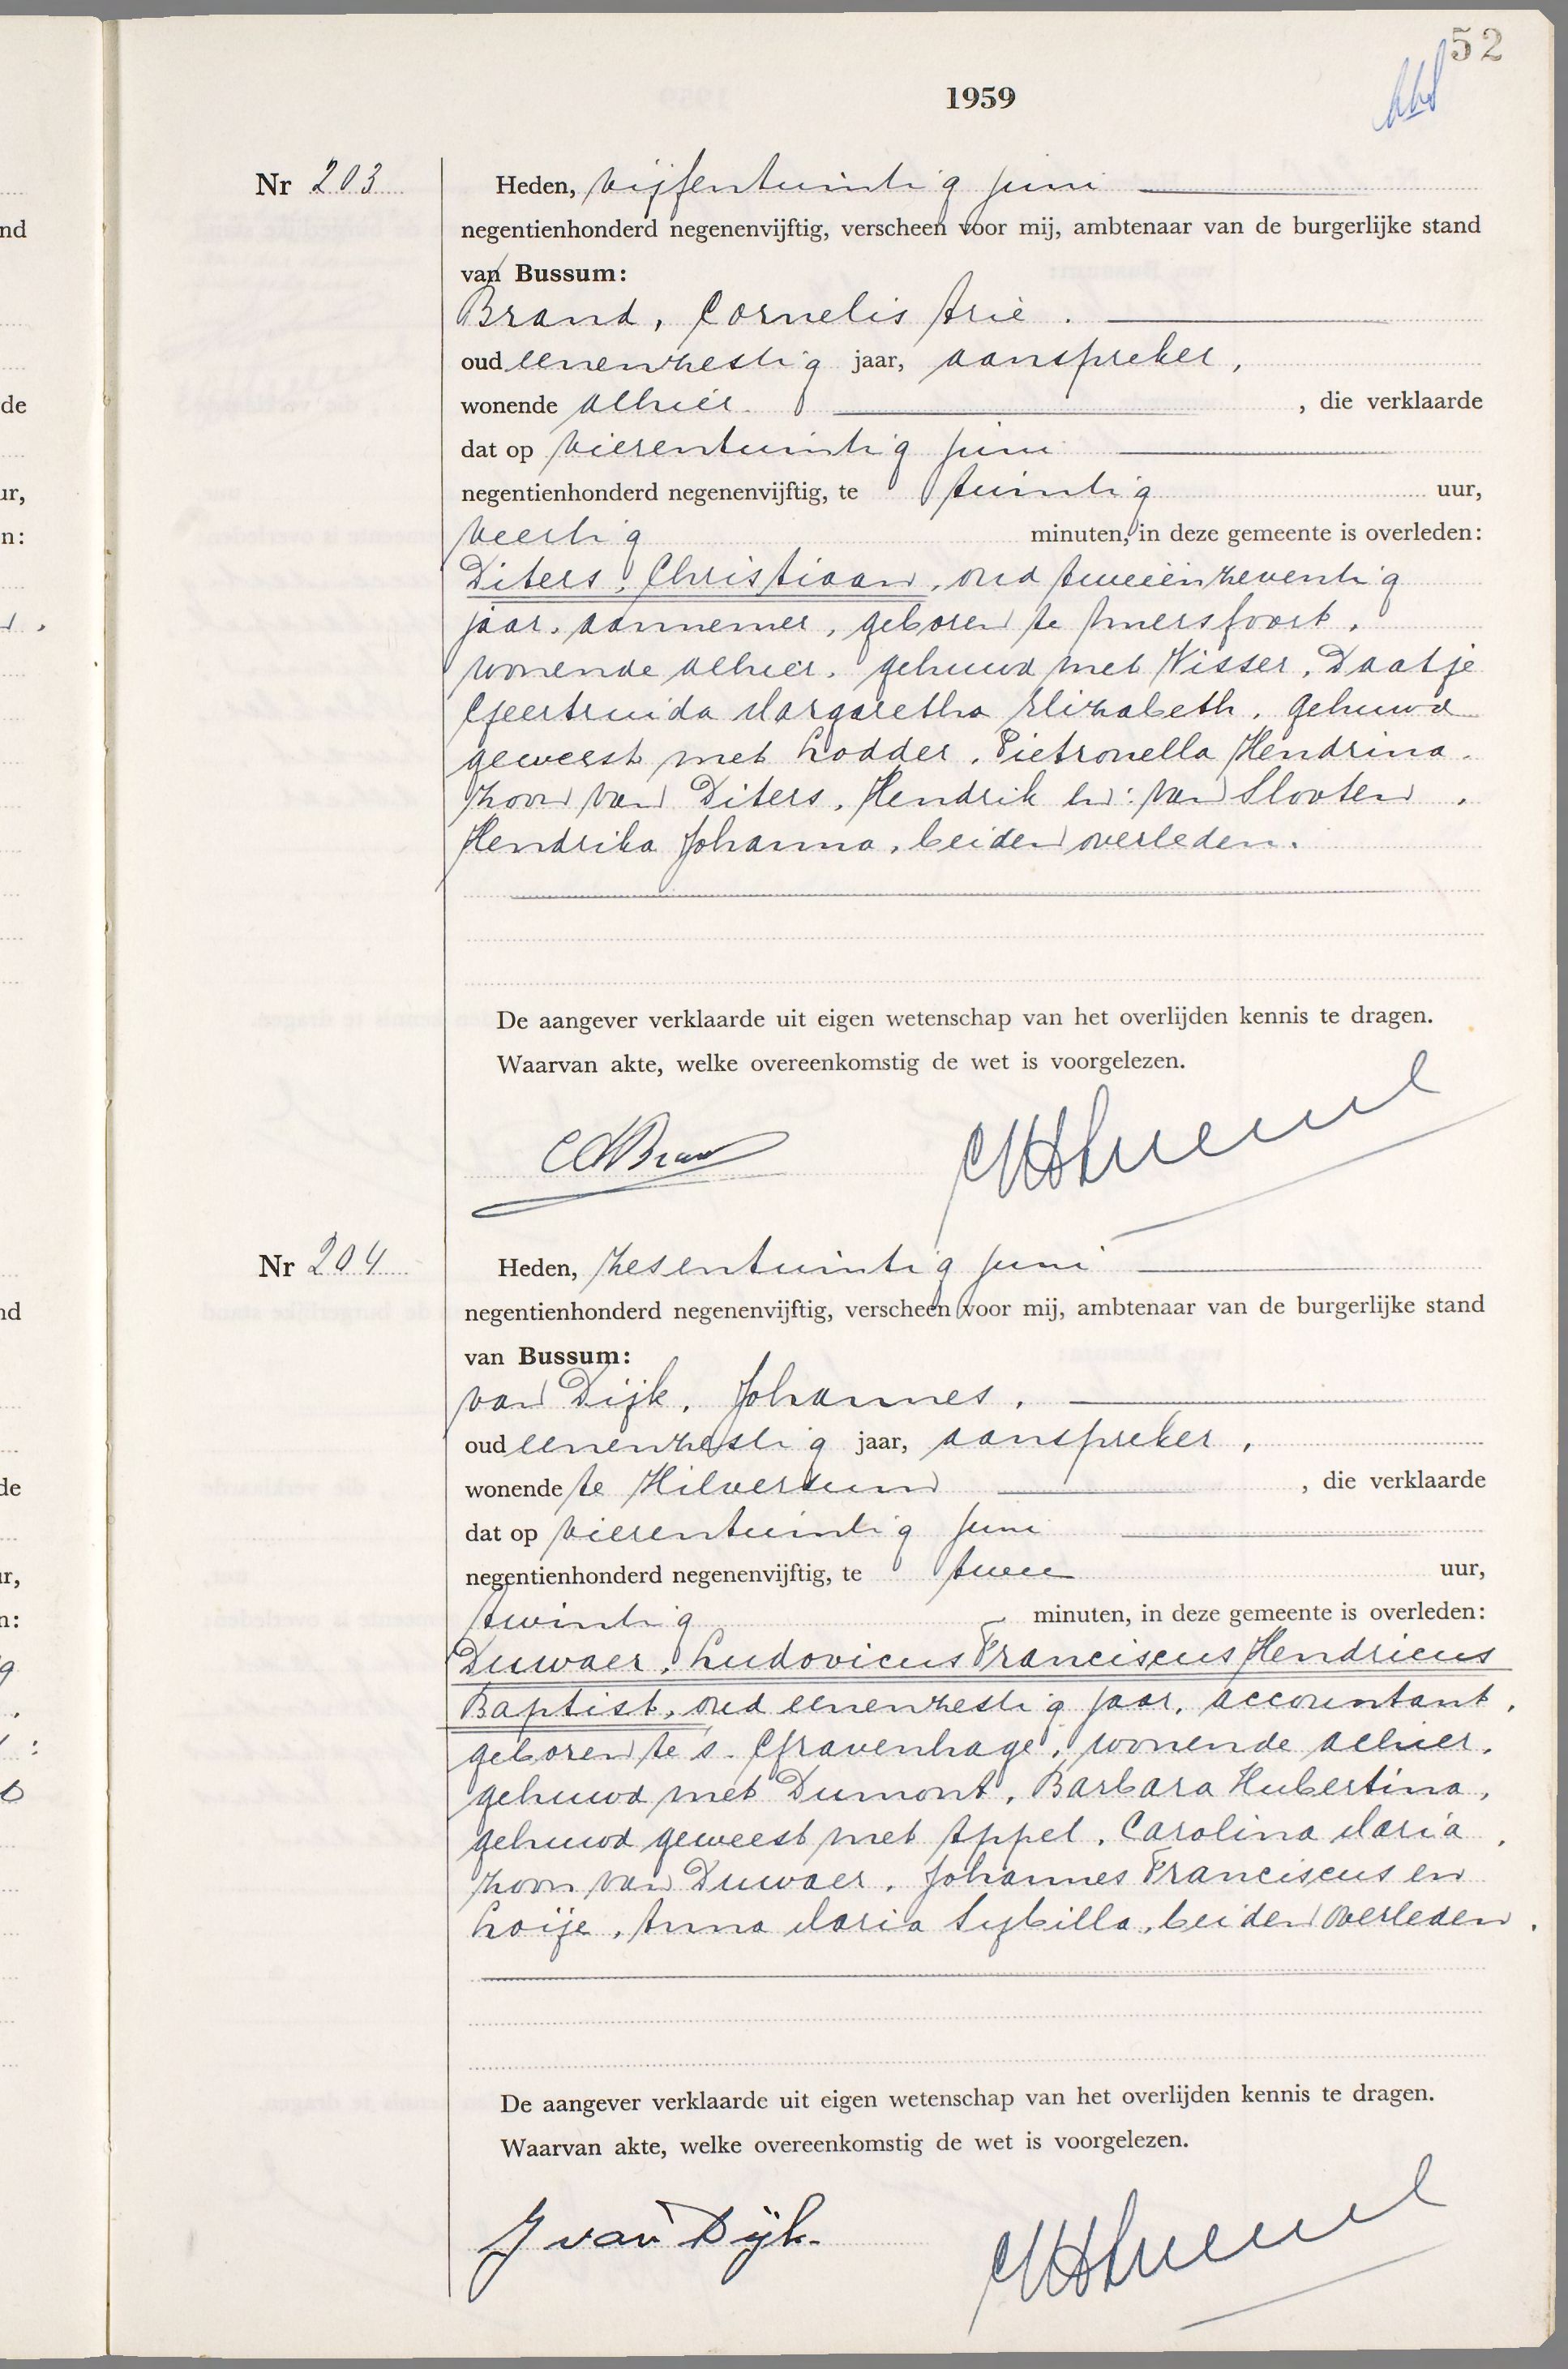 52
1959
Nr 203
Heden, vijfentwintig juni
negentienhonderd negenenvijftig, verscheen voor mij, ambtenaar van de burgerlijke stand
van Bussum:
Brand, Cornelis Arie.
oud eenenzestig jaar, aanspreker,
wonende alhier. , die verklaarde
dat op vierentwintig juni
negentienhonderd negenenvijftig, te twintig uur,
veertig minuten, in deze gemeente is overleden:
Diters, Christiaan, oud tweeënzeventig
jaar, aannemer, geboren te Amersfoort,
wonende alhier, gehuwd met Visser, Daatje
Geertruida Margaretha Elizabeth, gehuwd
geweest met Lodder, Pietronella Hendrina,
zoon van Diters, Hendrik en: van Slooten,
Hendrika Johanna, beiden overleden.
De aangever verklaarde uit eigen wetenschap van het overlijden kennis te dragen.
Waarvan akte, welke overeenkomstig de wet is voorgelezen.
CABrand
Nr 204
Heden, zesentwintig juni
negentienhonderd negenenvijftig, verscheen voor mij, ambtenaar van de burgerlijke stand
van Bussum:
van Dijk, Johannes,
oud eenenzestig jaar, aanspreker,
wonende te Hilversum , die verklaarde
dat op vierentwintig juni
negentienhonderd negenenvijftig, te twee uur,
twintig minuten, in deze gemeente is overleden:
Duwaer, Ludovicus Franciscus Hendricus
Baptist, oud eenenzestig jaar, accountant,
geboren te 's-Gravenhage, wonende alhier,
gehuwd met Dumont, Barbara Hubertina,
gehuwd geweest met Appel, Carolina Maria,
zoon van Duwaer, Johannes Franciscus en
Loije, Anna Maria Sybilla, beiden overleden.
De aangever verklaarde uit eigen wetenschap van het overlijden kennis te dragen.
Waarvan akte, welke overeenkomstig de wet is voorgelezen.
J van Dijk.